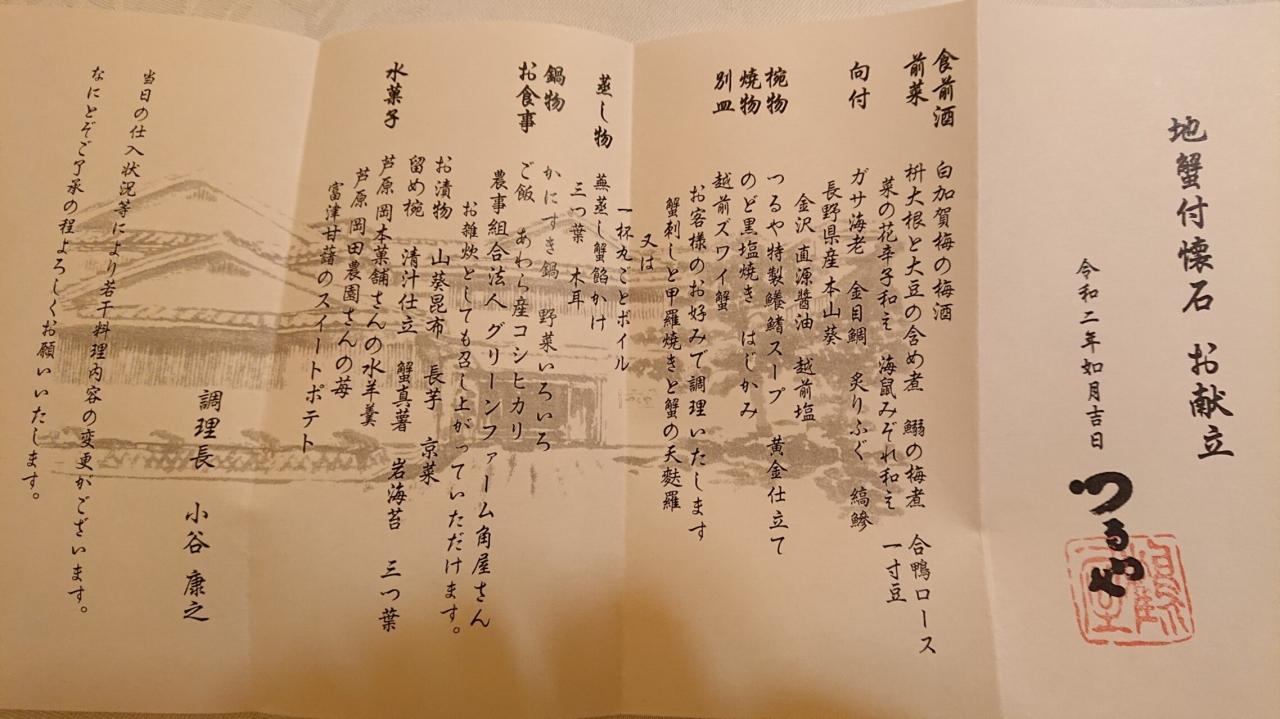 地蟹付懐石　お献立
令和二年如月吉日
つるや
食前酒　白加賀梅の梅酒
前菜　枡大根と大豆の含め煮　鰯の梅煮　合鴨ロース
菜の花辛子和え　海鼠みぞれ和え　一寸豆
向付　ガサ海老　金目鯛　炙りふぐ　縞鯵
長野県産　本山葵
金沢　直源醤油　越前塩
椀物　つるや特製鰭スープ　黄金仕立て
焼物　のど黒塩焼き　はじかみ
別皿　越前ズワイ蟹
お客様のお好みで調理いたします
蟹刺しと甲羅焼きと蟹の天麩羅
又は
一杯丸ごとボイル
蒸し物　蕪蒸し蟹餡かけ
三つ葉　木耳
鍋物　かにすき鍋　野菜いろいろ
お食事　ご飯　あわら産コシヒカリ
農事組合法人　グリーンファーム角屋さん
お雑炊としても召し上がっていただけます。
お漬物　山葵昆布　長芋　京菜
留め椀　清汁仕立　蟹真薯　岩海苔　三つ葉
水菓子　芦原　岡本菓舗さんの水羊羹
芦原　岡田農園さんの苺
富津甘藷のスイートポテト
調理長　小谷　康之
当日の仕入状況等により若干料理内容の変更がございます。
なにとぞご了承の程よろしくお願いいたします。